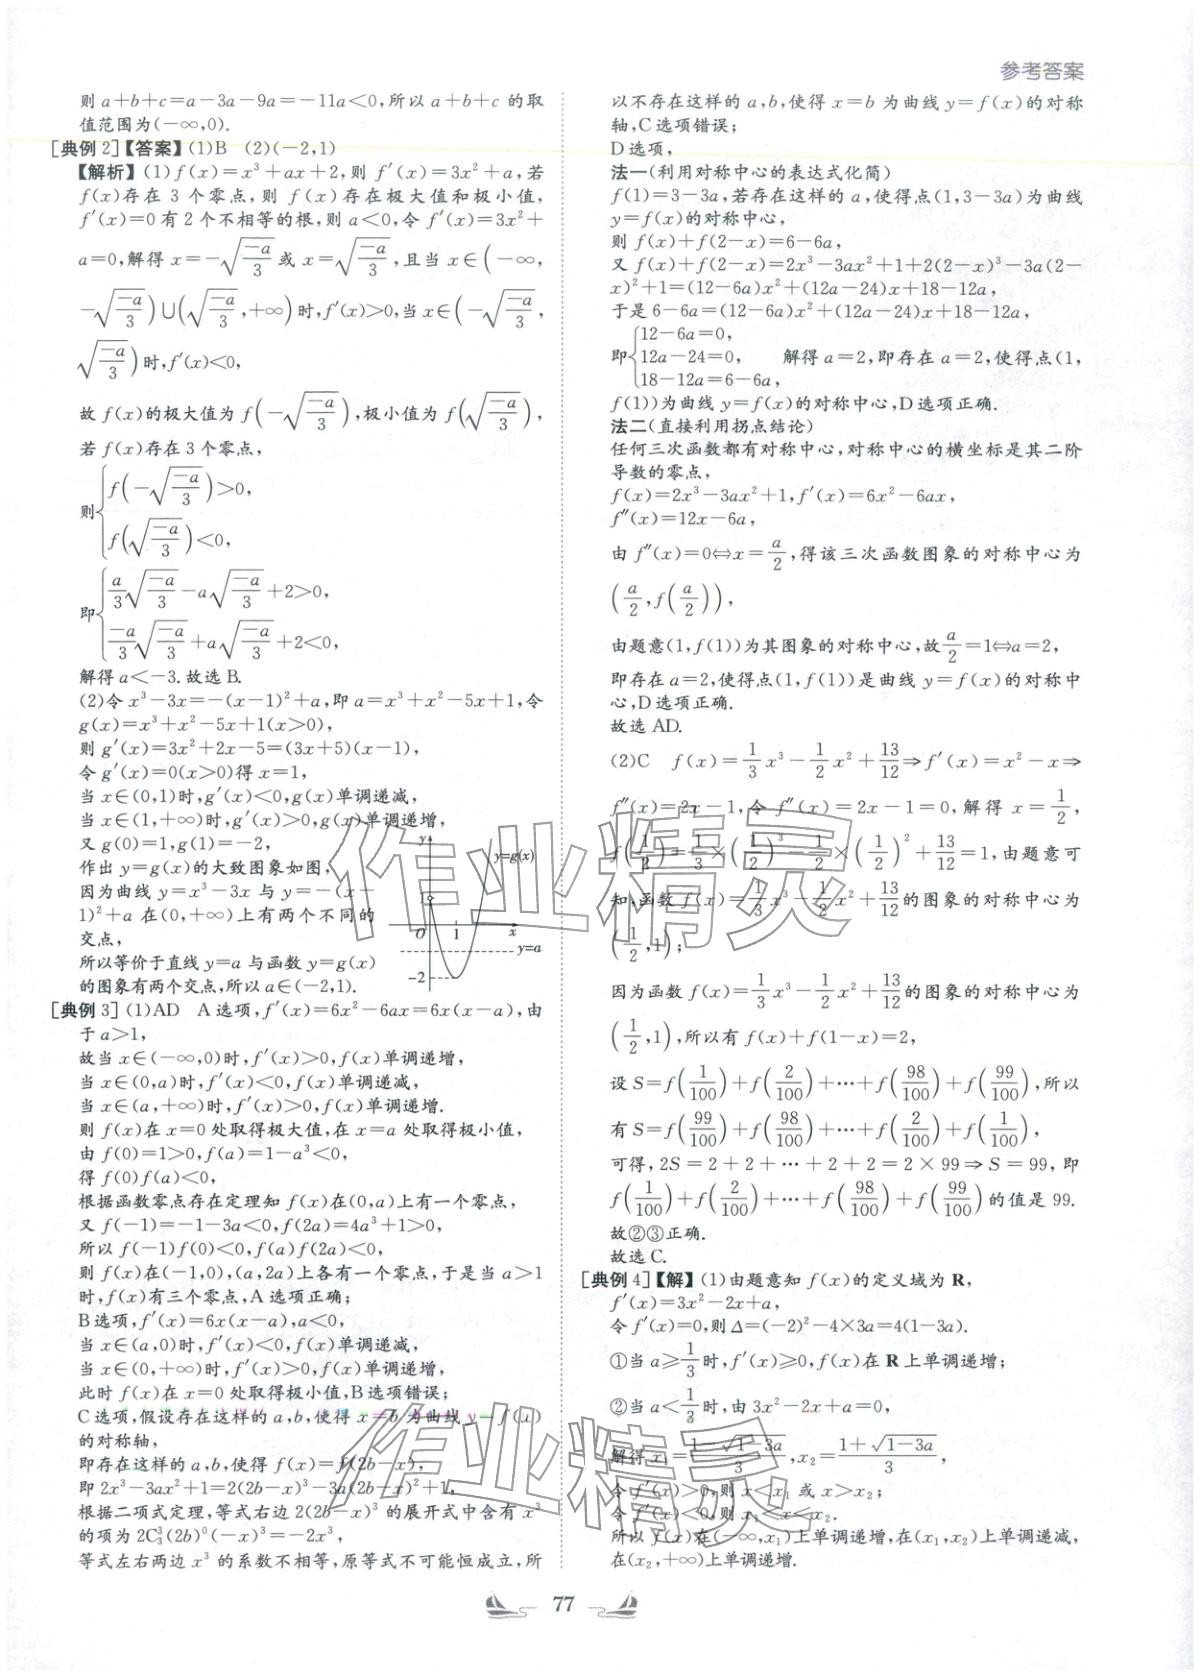 参考答案
则 a+b+c=a-3a-9a=-11a<0,所以 a+b+c 的取
值范围为(-∞,0).
[典例2]【答案】(1)B (2)(-2,1)
【解析】(1)f(x)=x³+ax+2,则 f′(x)=3x²+a,若
f(x)存在 3 个零点,则 f(x)存在极大值和极小值,
f′(x)=0有2个不相等的根,则 a<0,令 f′(x)=3x²+
a=0,解得 x=-√(-a/3)或 x=√(-a/3),且当 x∈(-∞,
-√(-a/3))∪(√(-a/3),+∞)时,f′(x)>0,当 x∈(-√(-a/3),
√(-a/3))时,f′(x)<0,
故 f(x)的极大值为 f(-√(-a/3)),极小值为 f(√(-a/3)),
若 f(x)存在3个零点,
则{f(-√(-a/3))>0,
f(√(-a/3))<0,
即{a/3√(-a/3)-a√(-a/3)+2>0,
-a/3√(-a/3)+a√(-a/3)+2<0,
解得 a<-3.故选B.
(2)令 x³-3x=-(x-1)²+a,即 a=x³+x²-5x+1,令
g(x)=x³+x²-5x+1(x>0),
则 g′(x)=3x²+2x-5=(3x+5)(x-1),
令 g′(x)=0(x>0)得 x=1,
当 x∈(0,1)时,g′(x)<0,g(x)单调递减,
当 x∈(1,+∞)时,g′(x)>0,g(x)单调递增,
又 g(0)=1,g(1)=-2,
作出 y=g(x)的大致图象如图,
因为曲线 y=x³-3x 与 y=-(x-
1)²+a 在(0,+∞)上有两个不同的
交点,
所以等价于直线 y=a 与函数 y=g(x)
的图象有两个交点,所以 a∈(-2,1).
y
y=g(x)
O 1 x
y=a
-2
[典例3](1)AD A选项,f′(x)=6x²-6ax=6x(x-a),由
于 a>1,
故当 x∈(-∞,0)时,f′(x)>0,f(x)单调递增,
当 x∈(0,a)时,f′(x)<0,f(x)单调递减,
当 x∈(a,+∞)时,f′(x)>0,f(x)单调递增.
则 f(x)在 x=0 处取得极大值,在 x=a 处取得极小值,
由 f(0)=1>0,f(a)=1-a³<0,
得 f(0)f(a)<0,
根据函数零点存在定理知 f(x)在(0,a)上有一个零点,
又 f(-1)=-1-3a<0,f(2a)=4a³+1>0,
所以 f(-1)f(0)<0,f(a)f(2a)<0,
则 f(x)在(-1,0),(a,2a)上各有一个零点,于是当 a>1
时,f(x)有三个零点,A选项正确;
B选项,f′(x)=6x(x-a),a<0,
当 x∈(a,0)时,f′(x)<0,f(x)单调递减,
当 x∈(0,+∞)时,f′(x)>0,f(x)单调递增,
此时 f(x)在 x=0 处取得极小值,B选项错误;
C选项,假设存在这样的 a,b,使得 x=b 为曲线 y=f(x)
的对称轴,
即存在这样的 a,b,使得 f(x)=f(2b-x),
即 2x³-3ax²+1=2(2b-x)³-3a(2b-x)²+1,
根据二项式定理,等式右边 2(2b-x)³ 的展开式中含有 x³
的项为 2C₃³(2b)⁰(-x)³=-2x³,
等式左右两边 x³ 的系数不相等,原等式不可能恒成立,所
以不存在这样的 a,b,使得 x=b 为曲线 y=f(x)的对称
轴,C选项错误;
D选项,
法一(利用对称中心的表达式化简)
f(1)=3-3a,若存在这样的 a,使得点(1,3-3a)为曲线
y=f(x)的对称中心,
则 f(x)+f(2-x)=6-6a,
又 f(x)+f(2-x)=2x³-3ax²+1+2(2-x)³-3a(2-
x)²+1=(12-6a)x²+(12a-24)x+18-12a,
于是 6-6a=(12-6a)x²+(12a-24)x+18-12a,
即{12-6a=0,
12a-24=0, 解得 a=2,即存在 a=2,使得点(1,
18-12a=6-6a,
f(1))为曲线 y=f(x)的对称中心,D选项正确.
法二(直接利用拐点结论)
任何三次函数都有对称中心,对称中心的横坐标是其二阶
导数的零点,
f(x)=2x³-3ax²+1,f′(x)=6x²-6ax,
f″(x)=12x-6a,
由 f″(x)=0⇔x=a/2,得该三次函数图象的对称中心为
(a/2,f(a/2)),
由题意(1,f(1))为其图象的对称中心,故a/2=1⇔a=2,
即存在 a=2,使得点(1,f(1))是曲线 y=f(x)的对称中
心,D选项正确.
故选 AD.
(2)C f(x)=1/3x³-1/2x²+13/12⇒f′(x)=x²-x⇒
f″(x)=2x-1,令 f″(x)=2x-1=0,解得 x=1/2,
f(1/2)=1/3×(1/2)³-1/2×(1/2)²+13/12=1,由题意可
知,函数 f(x)=1/3x³-1/2x²+13/12的图象的对称中心为
(1/2,1);
因为函数 f(x)=1/3x³-1/2x²+13/12的图象的对称中心为
(1/2,1),所以有 f(x)+f(1-x)=2,
设 S=f(1/100)+f(2/100)+…+f(98/100)+f(99/100),所以
有 S=f(99/100)+f(98/100)+…+f(2/100)+f(1/100),
可得,2S=2+2+…+2+2=2×99⇒S=99,即
f(1/100)+f(2/100)+…+f(98/100)+f(99/100)的值是99.
故②③正确.
故选C.
[典例4]【解】(1)由题意知 f(x)的定义域为 R,
f′(x)=3x²-2x+a,
令 f′(x)=0,则 Δ=(-2)²-4×3a=4(1-3a).
①当 a≥1/3时,f′(x)≥0,f(x)在 R 上单调递增;
②当 a<1/3时,由 3x²-2x+a=0,
解得 x₁=(1-√(1-3a))/3,x₂=(1+√(1-3a))/3,
令 f′(x)>0,则 x<x₁ 或 x>x₂;
令 f′(x)<0,则 x₁<x<x₂,
所以 f(x)在(-∞,x₁)上单调递增,在(x₁,x₂)上单调递减,
在(x₂,+∞)上单调递增.
作业精灵
作业精灵
77